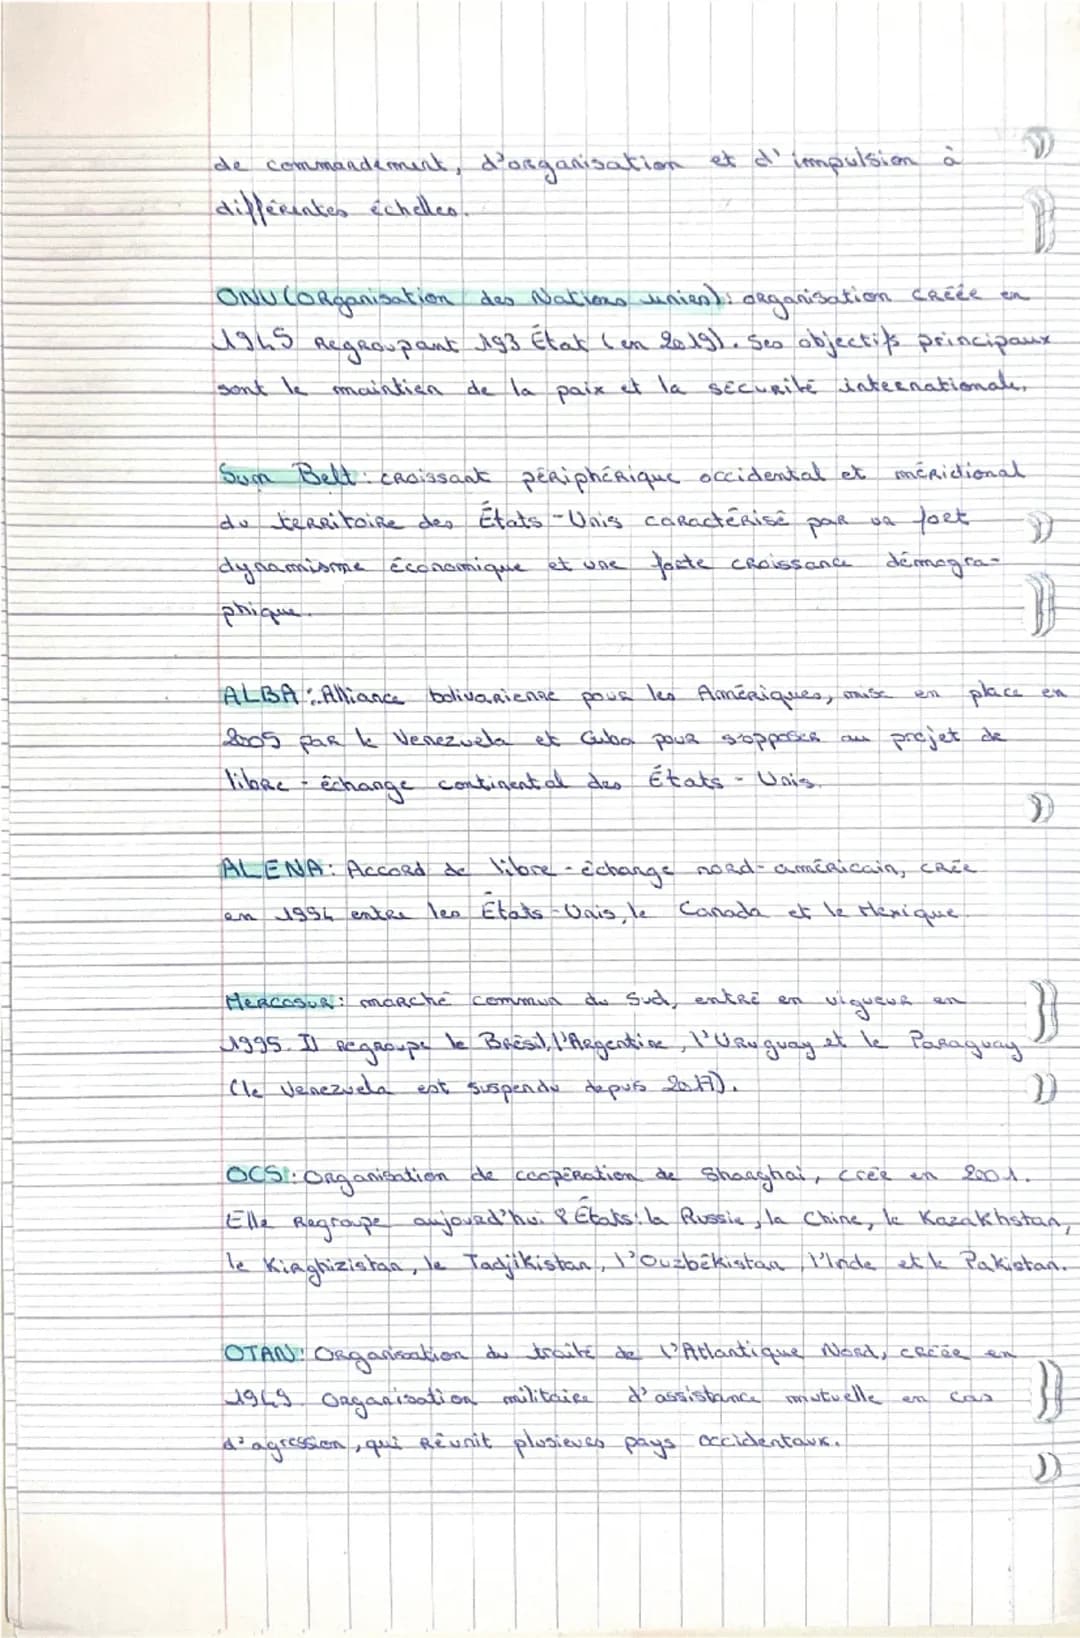 de commandement, d'organisation et d'impulsion à
différentes échelles.
ONU (Organisation des Nations unies): organisation créée en
1945 Regroupant 193 État (en 2019). Ses objectifs principaux
sont le maintien de la paix et la sécurité internationale,
Sun Belt: croissant périphérique occidental et méridional
du territoire des États-Unis caractérisé par un fort
dynamisme économique et une forte croissance démogra-
phique.
ALBA: Alliance bolivarienne pour les Amériques, mise en place en
2005 par le Venezuela et Cuba pour s'opposer au projet de
libre-échange continental des États-Unis.
ALENA: Accord de libre-échange nord-américain, crée
en 1994 entre les États-Unis, le Canada et le Mexique.
Mercosur: marché commun du Sud, entré en vigueur en
1995. Il regroupe le Brésil, l'Argentine, l'Uruguay et le Paraguay
(le Venezuela est suspendu depuis 2017).
OCS: Organisation de coopération de Shanghai, créé en 2001.
Elle Regroupe aujourd'hui 8 États: la Russie, la Chine, le Kazakhstan,
le Kirghizistan, le Tadjikistan, l'Ouzbékistan, l'Inde et le Pakistan.
OTAN: Organisation du traité de l'Atlantique Nord, créée en
1949. Organisation militaire d'assistance mutuelle en cas
d'agression, qui Réunit plusieurs pays occidentaux.